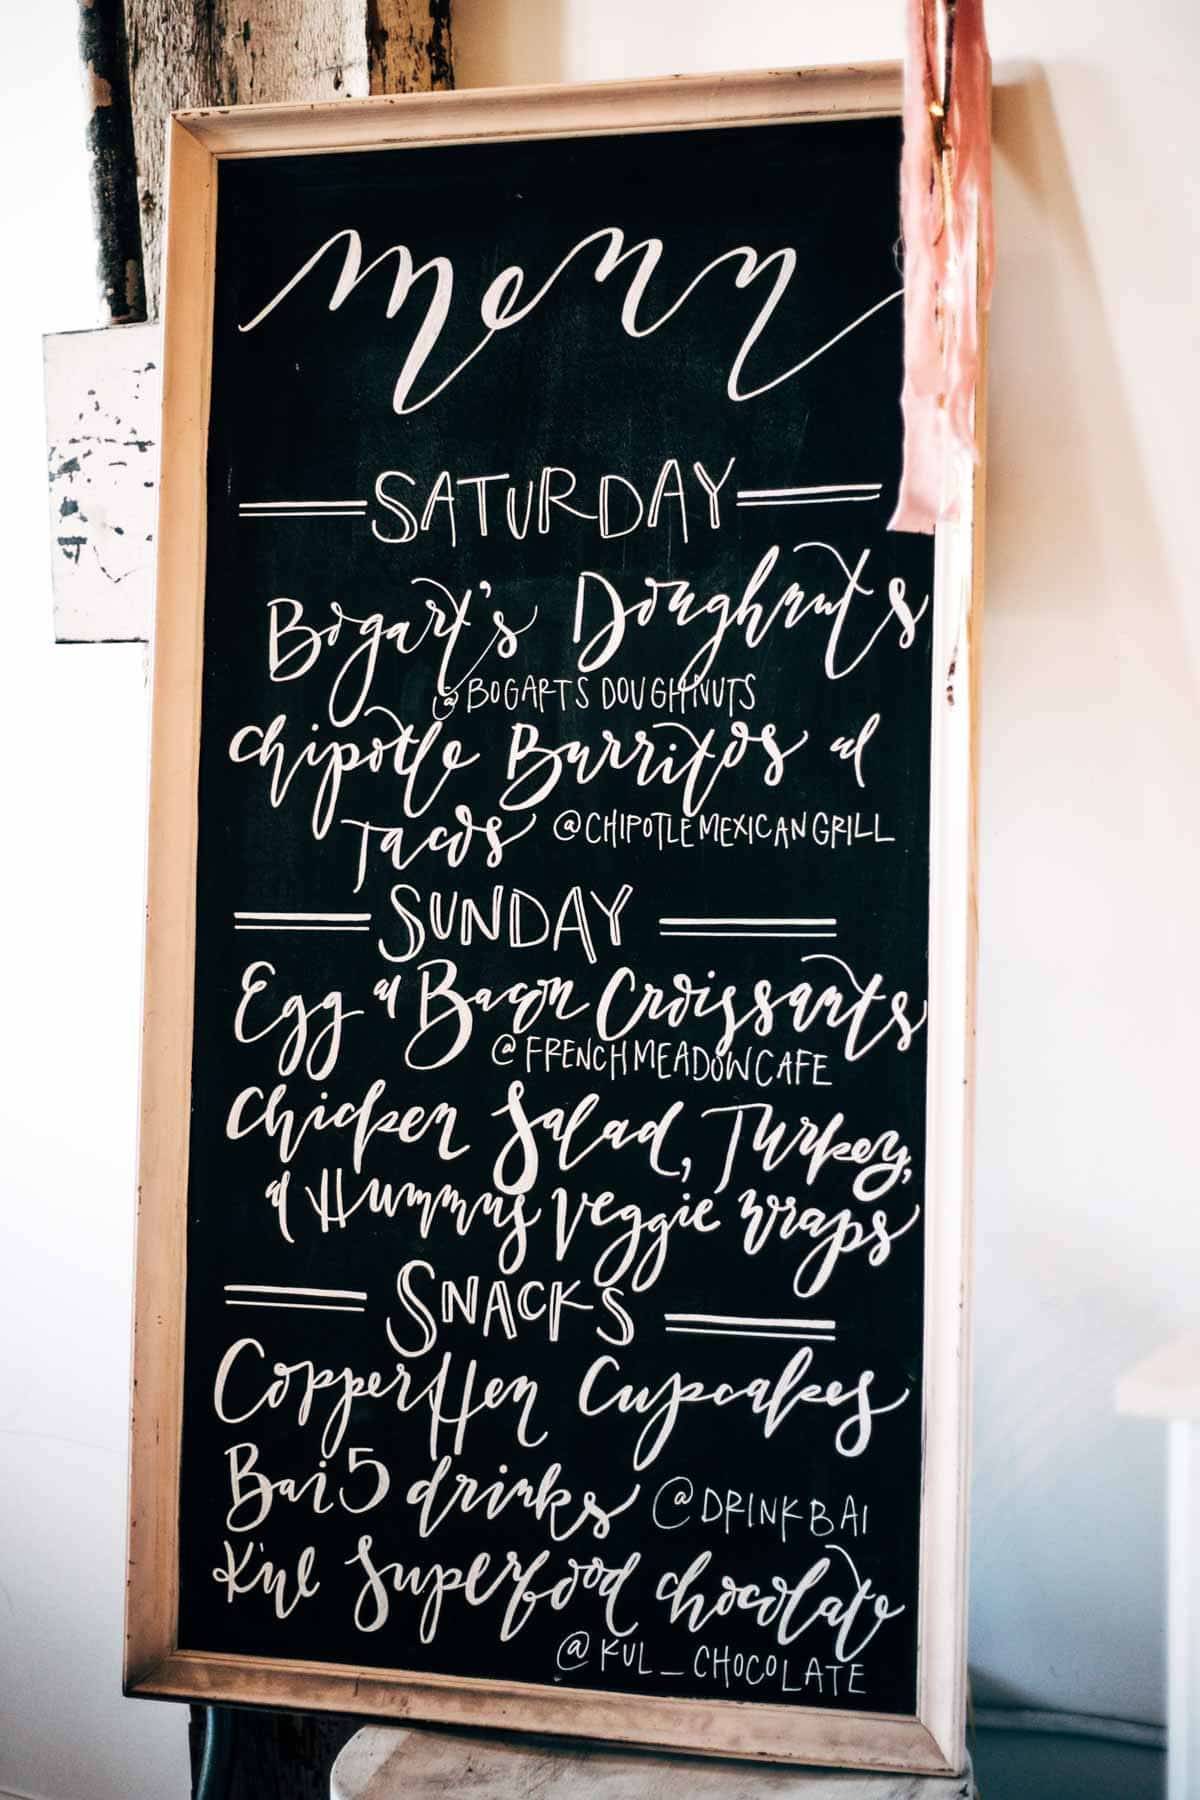 menu
SATURDAY
Bogart's Doughnuts
@BOGARTSDOUGHNUTS
Chipotle Burritos &
Tacos @CHIPOTLEMEXICANGRILL
SUNDAY
Egg & Bacon Croissants
@FRENCHMEADOWCAFE
Chicken Salad, Turkey,
& Hummus Veggie Wraps
SNACKS
Copper Hen Cupcakes
Bai5 drinks @DRINKBAI
K'ul Superfood chocolate
@KUL_CHOCOLATE